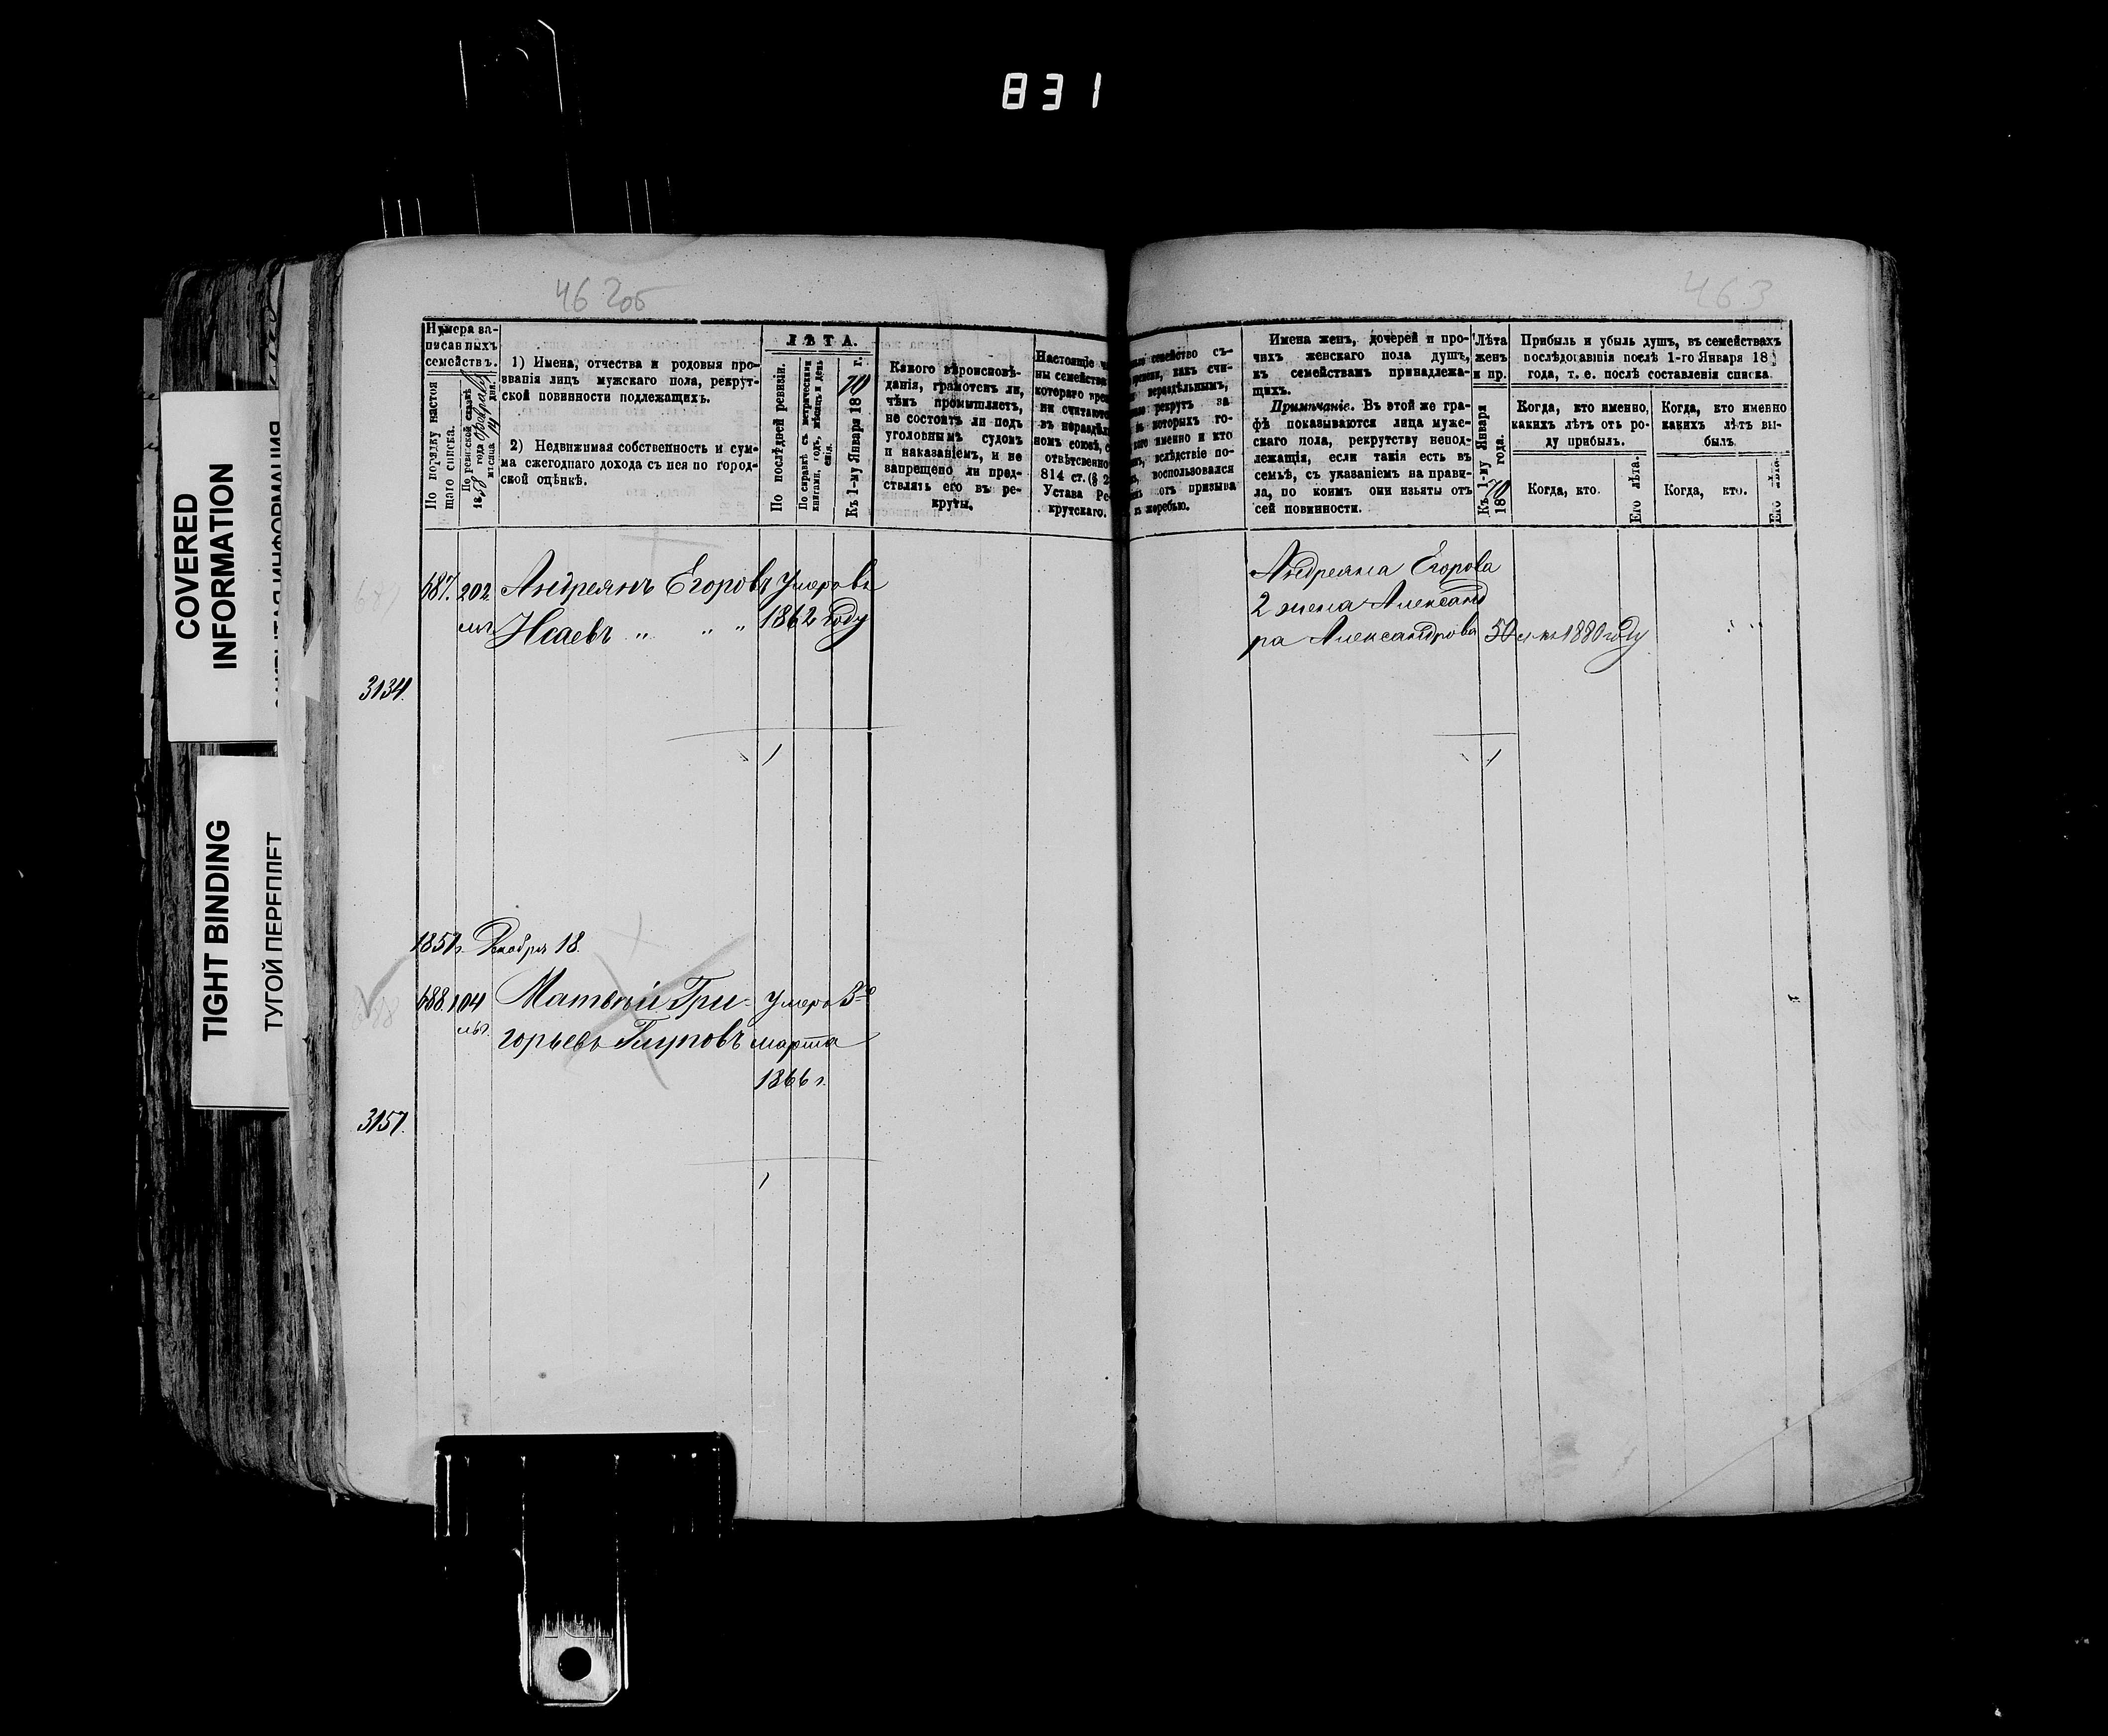 831
COVERED
INFORMATION
TIGHT BINDING
ТУГОЙ ПЕРЕПЛЕТ
462об
463
Нумера за-
писанныхъ
семействъ.
По порядку настоя
щаго списка.
По ревизской сказкѣ
1858 года Февраля
мѣсяца 14 дня.
1) Имена, отчества и родовыя про-
званія лицъ мужскаго пола, рекрут-
ской повинности подлежащихъ.
2) Недвижимая собственность и сум-
ма ежегоднаго дохода съ нея по город-
ской оцѣнкѣ.
ЛѢТА.
По послѣдней ревизіи.
По справкѣ съ метрическими
книгами, годъ, мѣсяцъ и день
Къ 1-му Января 1870 г.
Какого вѣроисповѣ-
данія, грамотенъ ли,
чѣмъ промышляетъ,
не состоитъ ли подъ
уголовнымъ судомъ
и наказаніемъ, и не
запрещено ли пред-
ставлять его въ ре-
круты.
Настоящіе
ны семейства
котораго
ни считаются
въ нераздѣль
номъ союзѣ, с
отвѣтственно
814 ст. (§ 2
Устава Ре-
крутскаго.
семейство съ-
времени, какъ счи-
нераздѣльнымъ,
рекрутъ за
которыхъ го-
именно и кто
вслѣдствіе по-
воспользовался
отъ призыва
къ жеребью.
Имена женъ, дочерей и про-
чихъ женскаго пола душъ,
къ семействамъ принадлежа-
щихъ.
Примѣчаніе. Въ этой же гра-
фѣ показываются лица муже-
скаго пола, рекрутству непод-
лежащія, если такія есть въ
семьѣ, съ указаніемъ на прави-
ла, по коимъ они изъяты отъ
сей повинности.
Лѣта
женъ
и пр.
Къ 1-му Января
1870 года.
Прибыль и убыль душъ, въ семействахъ
послѣдовавшія послѣ 1-го Января 18
года, т. е. послѣ составленія списка.
Когда, кто именно,
какихъ лѣтъ отъ ро-
ду прибылъ.
Когда, кто именно
какихъ лѣтъ вы-
былъ.
Когда, кто.
Его лѣта.
Когда, кто.
Его лѣта.
687. 202. Андреянъ Егоровъ Умеръ въ
Исаевъ " " " 1862 году
3134.
Андреяна Егорова
2 жена Александ
ра Александрова 50 1880 году
1857г. Декабря 18.
688. 104 Матвѣй Гри- Умеръ 3го
горьевъ Глуповъ марта
1866 г.
3157.